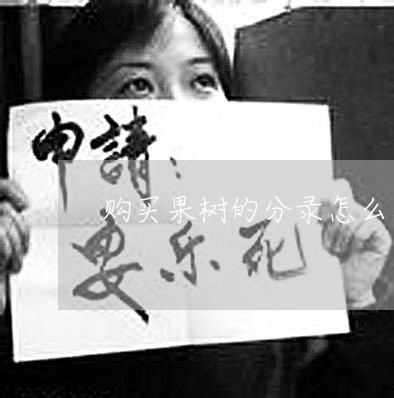 申請：
购买果树的分录怎么
安乐死